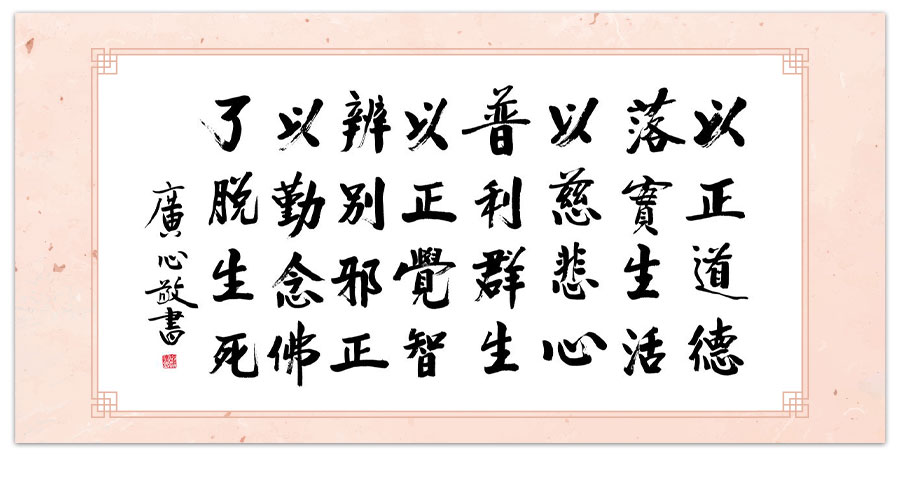 以正道德
落實生活
以慈悲心
普利群生
以正覺智
辨別邪正
以勤念佛
了脫生死
廣心敬書